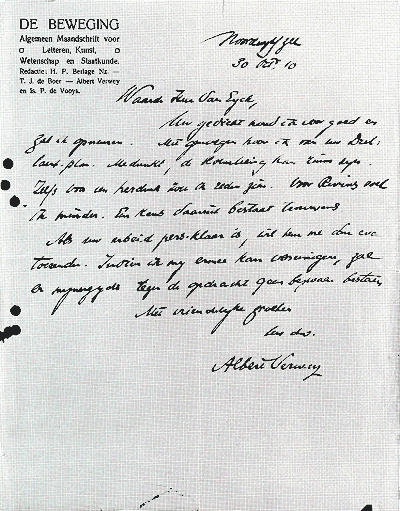 DE BEWEGING
Algemeen Maandschrift voor
Letteren, Kunst,
Wetenschap en Staatkunde.
Redactie: H. P. Berlage Nz. —
T. J. de Boer — Albert Verwey
en Is. P. de Vooys.
Noordwijk/Zee
30 Oct. 10
Waarde Heer Van Eyck,
Uw gedicht vond ik zoo goed en
zal ik opnemen. Met genoegen hoor ik van uw
plan. Me dunkt, de kan
Zelfs voor een herdruk zou ik reden zien. Voor
ik minder. Een keus daaruit bestaat trouwens
Als uw arbeid pers-klaar is, wil hem me dan
toezenden. Indien ik my ermee kan vereenigen, zal
er mynerzyds tegen de opdracht geen bezwaar bestaan.
Met vriendelyke groeten
Albert Verwey